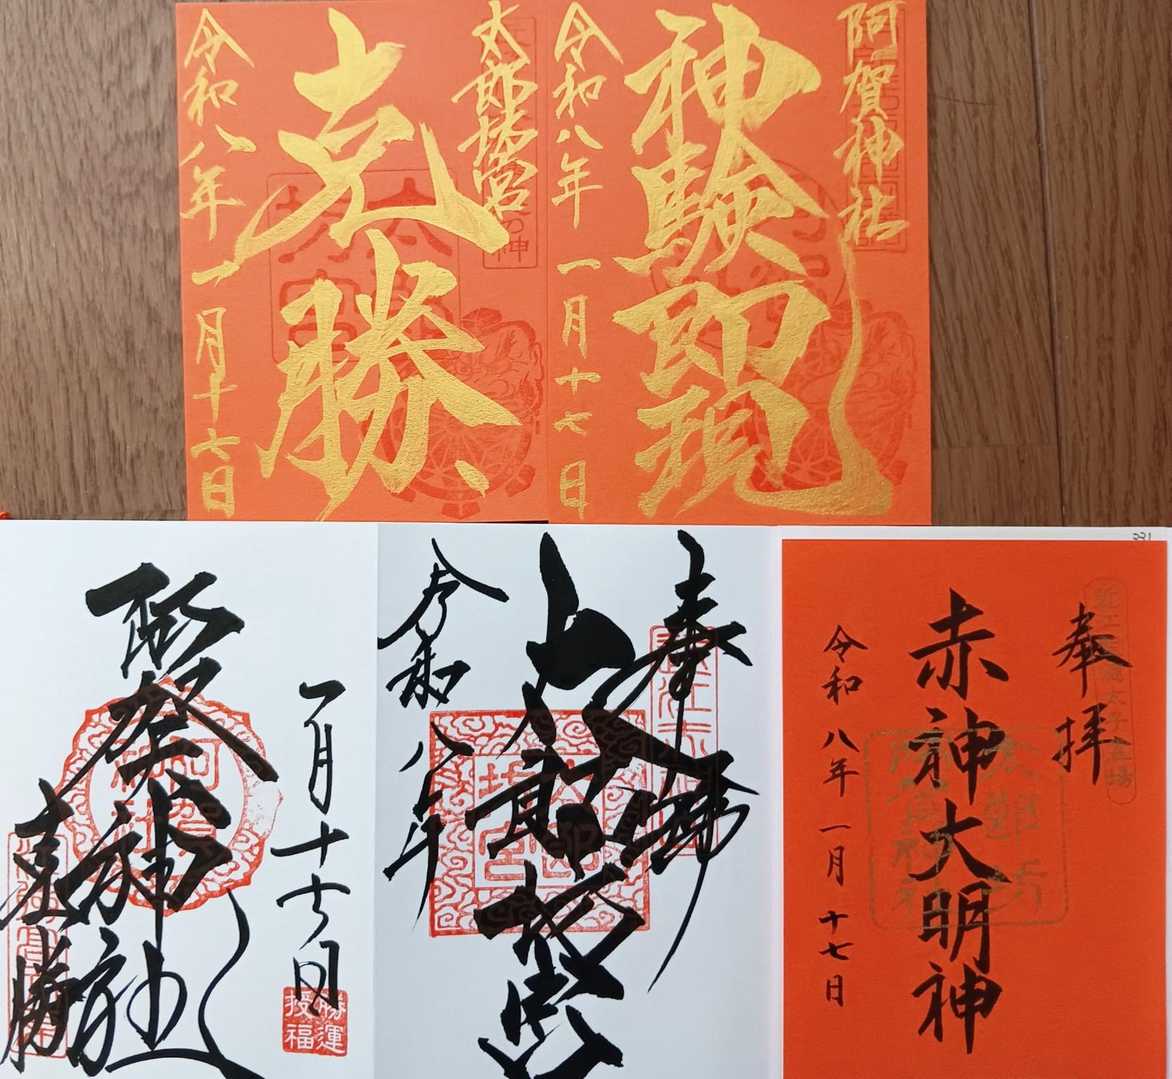 阿賀神社
神験即現
令和八年
一月十七日
太郎坊宮
克勝
令和八年
一月十六日
奉拝
赤神大明神
令和八年
一月十七日
奉拝
太郎坊宮
令和八年
一月十七日
阿賀神社
来勝
勝運
授福